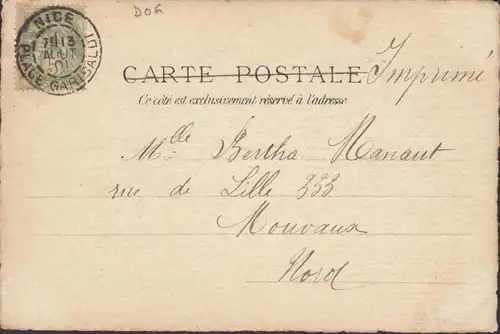 DOE
NICE PLACE GARIBALDI
7E 13
AOUT
01
CARTE POSTALE Imprimé
Ce côté est exclusivement réservé à l'adresse
Mlle Bertha Manaut
rue de Lille 333
Mouvaux
Nord